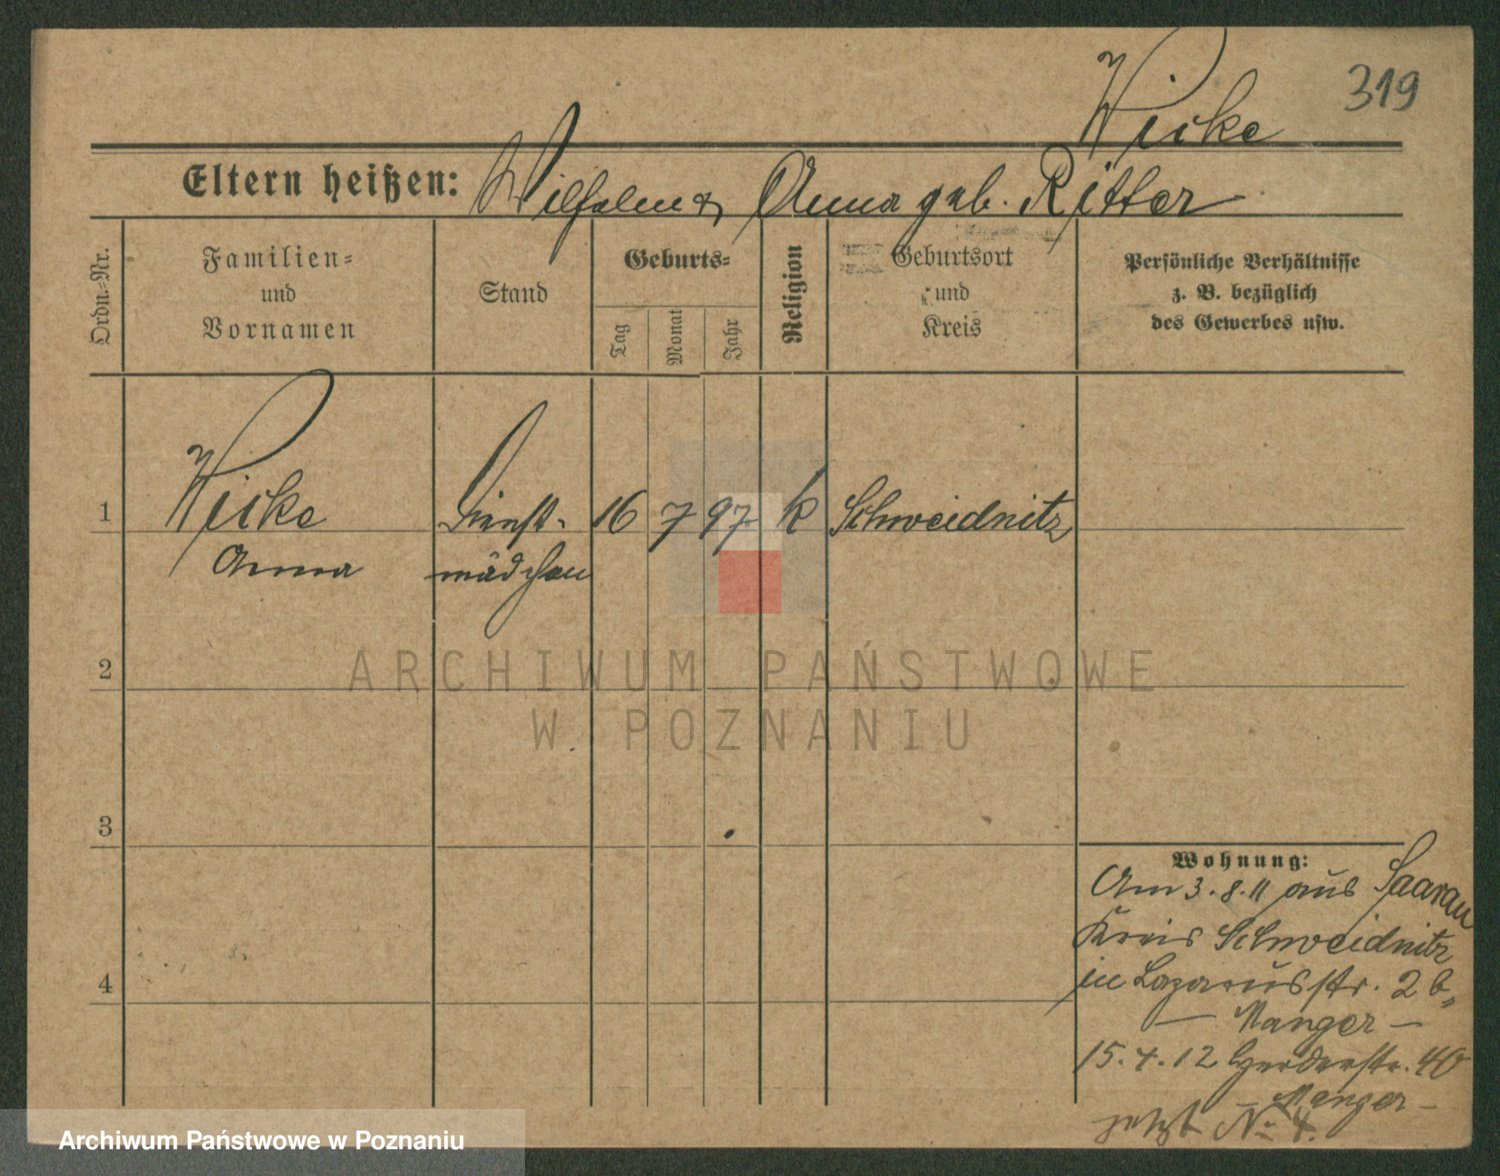 319
Wicke
Eltern heißen: Wilhelm & Anna geb. Ritter
Ordn.-Nr.
Familien-
und
Vornamen
Stand
Geburts-
Tag
Monat
Jahr
Religion
Geburtsort
und
Kreis
Persönliche Verhältnisse
z. B. bezüglich
des Gewerbes usw.
1 Wicke Dienst- 16 7 97 k Schweidnitz
Anna mädchen
ARCHIWUM PAŃSTWOWE
W POZNANIU
2
3
4
Wohnung:
Am 3.8.11 aus Saarau
Kreis Schweidnitz
in Lazarusstr. 2 b,
— Manger —
15.4.12 Herderstr. 40
— Manger —
jetzt No 4.
Archiwum Państwowe w Poznaniu